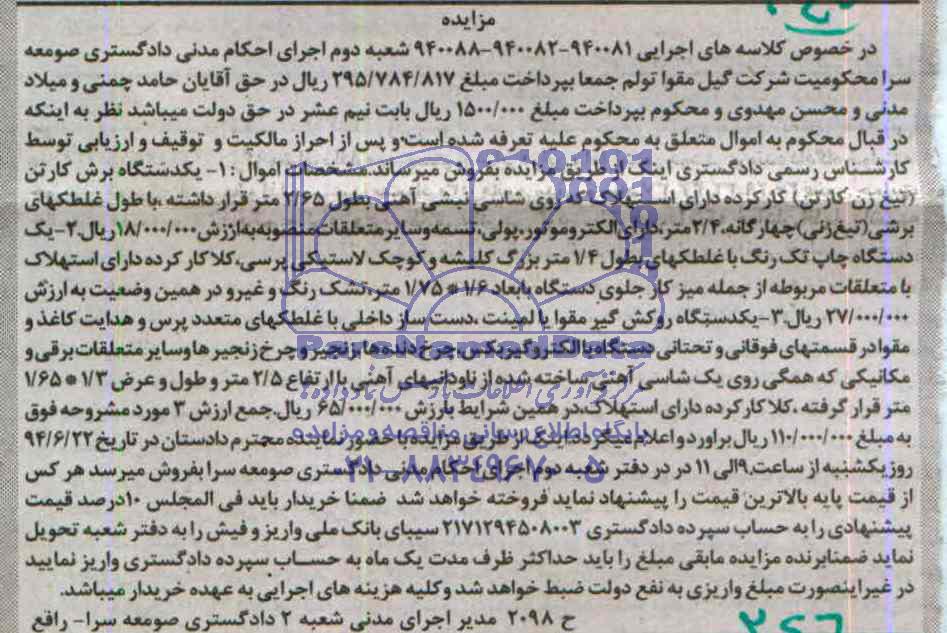 مزایده
در خصوص کلاسه های اجرایی ۹۴۰۰۸۱-۹۴۰۰۸۲-۹۴۰۰۸۸ شعبه دوم اجرای احکام مدنی دادگستری صومعه
سرا محکومیت شرکت گیل مقوا تولم جمعا بپرداخت مبلغ ۲۹۵/۷۸۴/۸۱۷ ریال در حق آقایان حامد چمنی و میلاد
مدنی و محسن مهدوی و محکوم بپرداخت مبلغ ۱۵۰۰/۰۰۰ ریال بابت نیم عشر در حق دولت میباشد نظر به اینکه
در قبال محکوم به اموال متعلق به محکوم علیه تعرفه شده است و پس از احراز مالکیت و توقیف و ارزیابی توسط
کارشناس رسمی دادگستری اینک از طریق مزایده بفروش میرساند.مشخصات اموال : ۱- یکدستگاه برش کارتن
(تیغ زن کارتن) کارکرده دارای استهلاک که روی شاسی نبشی آهنی بطول ۲/۶۵ متر قرار داشته ،با طول غلطکهای
برشی(تیغ زنی)چهارگانه،۲/۴متر،دارای الکتروموتور،پولی،تسمه وسایر متعلقات منصوبه به ارزش۱۸/۰۰۰/۰۰۰ریال.۲-یک
دستگاه چاپ تک رنگ با غلطکهای بطول ۱/۴ متر بزرگ کلیشه و کوچک لاستیکی پرسی،کلا کار کرده دارای استهلاک
با متعلقات مربوطه از جمله میز کار جلوی دستگاه بابعاد ۱/۶*۱/۷۵ متر،تشک رنگ و غیرو در همین وضعیت به ارزش
۲۷/۰۰۰/۰۰۰ ریال.۳-یکدستگاه روکش گیر مقوا یا لمینت ،دست ساز داخلی با غلطکهای متعدد پرس و هدایت کاغذ و
مقوادر قسمتهای فوقانی و تحتانی دستگاه با الکتروگیربکس،چرخ دنده ها بزنجیر و چرخ زنجیر ها وسایر متعلقات برقی و
مکانیکی که همگی روی یک شاسی آهنی ساخته شده از ناودانیهای آهنی با ارتفاع ۲/۵ متر و طول و عرض ۱/۳*۱/۶۵
متر قرار گرفته ،کلا کار کرده دارای استهلاک،در همین شرایط بارزش ۶۵/۰۰۰/۰۰۰ ریال.جمع ارزش ۳ مورد مشروحه فوق
به مبلغ ۱۱۰/۰۰۰/۰۰۰ ریال براورد و اعلام میگردد اینک از طریق مزایده با حضور نماینده محترم دادستان در تاریخ ۹۴/۶/۲۲
روز یکشنبه از ساعت ۹الی ۱۱ در در دفتر شعبه دوم اجرای احکام مدنی دادگستری صومعه سرا بفروش میرسد هر کس
از قیمت پایه بالاترین قیمت را پیشنهاد نماید فروخته خواهد شد ضمنا خریدار باید فی المجلس ۱۰درصد قیمت
پیشنهادی را به حساب سپرده دادگستری ۲۱۷۱۲۹۴۵۰۸۰۰۳ سیبای بانک ملی واریز و فیش را به دفتر شعبه تحویل
نماید ضمنابرنده مزایده مابقی مبلغ را باید حداکثر ظرف مدت یک ماه به حساب سپرده دادگستری واریز نمایید
در غیراینصورت مبلغ واریزی به نفع دولت ضبط خواهد شد وکلیه هزینه های اجرایی به عهده خریدار میباشد.
ح ۲۰۹۸ مدیر اجرای مدنی شعبه ۲ دادگستری صومعه سرا- رافع
ParsNamadData
پایگاه اطلاع رسانی مناقصه و مزایده
۰۲۱-۸۸۳۴۹۶۷۰-۵